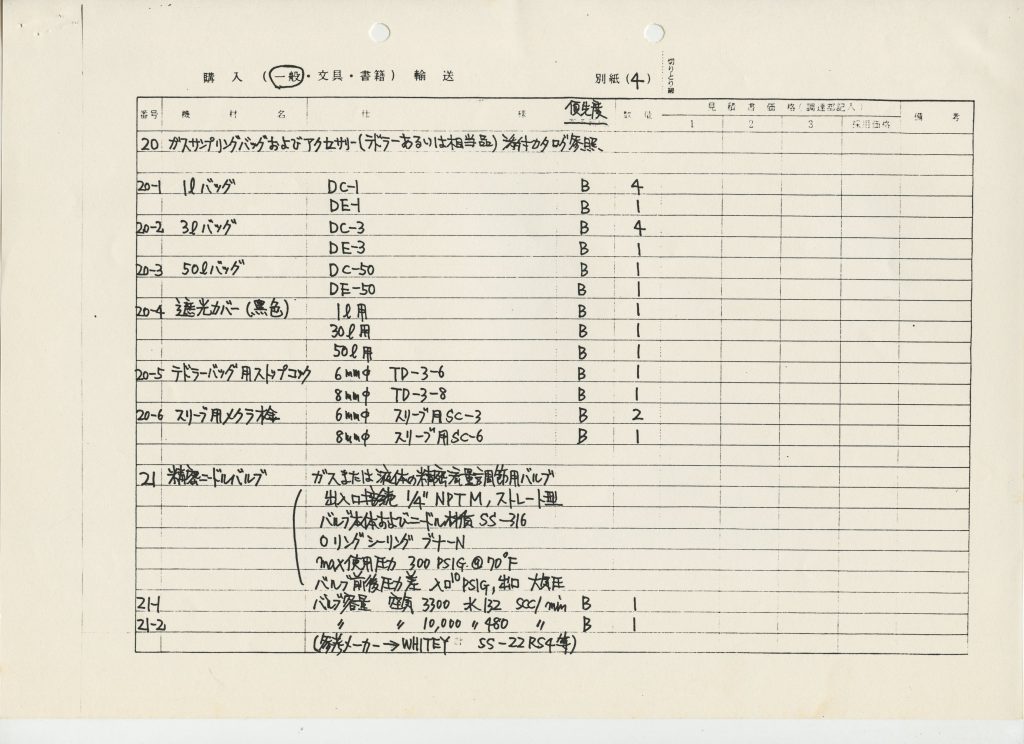 購入（一般・文具・書籍）輸送 別紙(4) 切りとり線
番号 機材名 仕様 優先度 数量 見積書価格（調達部記入） 備考
1 2 3 採用価格
20 ガスサンプリングバッグおよびアクセサリー(テドラーあるいは相当品) 添付カタログ参照、
20-1 1lバッグ DC-1 B 4
DE-1 B 1
20-2 3lバッグ DC-3 B 4
DE-3 B 1
20-3 50lバッグ DC-50 B 1
DE-50 B 1
20-4 遮光カバー(黒色) 1l用 B 1
30l用 B 1
50l用 B 1
20-5 テドラーバッグ用ストップコック 6mmφ TD-3-6 B 1
8mmφ TD-3-8 B 1
20-6 スリーブ用メクラ栓 6mmφ スリーブ用SC-3 B 2
8mmφ スリーブ用SC-6 B 1
21 精密ニードルバルブ ガスまたは液体の精密流量調節用バルブ
出入口接続 1/4" NPTM, ストレート型
バルブ本体およびニードル材質 SS-316
Oリングシーリング ブナーN
max使用圧力 300 PSIG @70°F
バルブ前後圧力差 入口10PSIG, 出口 大気圧
21-1 バルブ容量 空気 3300 水132 SCC/min B 1
21-2 〃 〃 10,000 〃 480 〃 B 1
(参考メーカー→WHITEY SS-22RS4等)